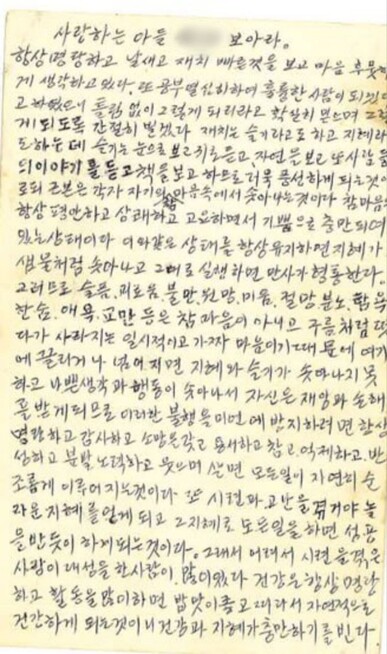 사랑하는 아들 보아라.
항상 명랑하고 날새고 재치 빠른것을 보고 마음 후뭇하
게 생각하고 있다. 또 공부 열심히하여 훌륭한 사람이 되겠다
고 하였으니 틀림 없이 그렇게 되리라고 확실히 믿으며 그렇
게 되도록 간절히 빌겠다 재치는 슬기라고도 하고 지혜라
도 하는데 슬기는 눈으로 보고 귀로 듣고 자연을 보고 딴사람들
의 이야기를 듣고 책을 보고 하므로 더욱 풍성하게 되는것이
로되 근본은 각자 자기의 참마음속에서 솟아나는것이다 참마음은
항상 평안하고 상쾌하고 고요하면서 기쁨으로 충만되여
있는상태이다 이와같은 상태를 항상 유지하면 지혜가
샘물처럼 솟아나고 그대로 실행하면 만사가 형통한다.
그러므로 슬픔. 괴로움. 불만. 원망. 미움. 절망. 분노. 탐욕
한숨. 애욕. 교만 등은 참마음이 아니고 구름처럼 떠
다가 사라지는 일시적이고 가짜 마음이기 때문에 여기
에 끌리거나 넘어지면 지혜와 슬기가 솟아나지 못
하고 나쁜생각과 행동이 솟아나서 자신은 재앙과 손해
를 받게되므로 이러한 불행을 미연에 방지하려면 항상
명랑하고 감사하고 소망을갖고 용서하고 참고. 억제하고. 반
성하고 분발노력하고 웃으며 살면 모든일이 자연히 순
조롭게 이루어지는것이다 또 시련과 고난을 겪거야 놀
라운 지혜를 얻게 되고 그지혜로 모든일을 하면 성공
을 밥듯이 하게되는것이다. 그래서 어려서 시련을 겪은
사람이 대성을 한사람이 많이있다 건강은 항상 명랑
하고 활동을 많이하면 밥맛이 좋고 따라서 자연적으로
건강하게 되는것이니 건강과 지혜가 충만하기를 빈다.